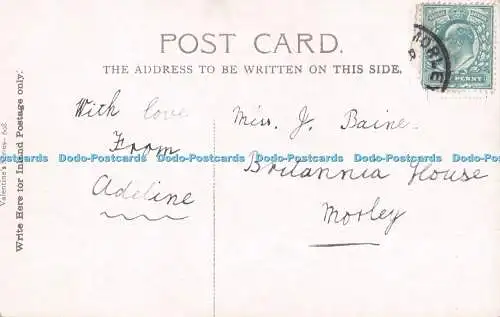 POST CARD.
THE ADDRESS TO BE WRITTEN ON THIS SIDE.
Valentine's Series
Write Here for Inland Postage only.
With love
From
Adeline
Miss. J. Baine.
Britannia House
Morley
MORLEY
PENNY
Dodo-Postcards Dodo-Postcards Dodo-Postcards Dodo-Postcards Dodo-Postcards